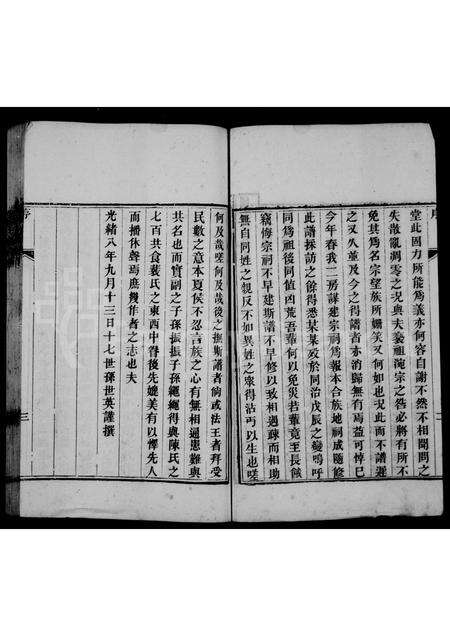 序
堂此固力所能爲義亦何容自謝不然不相聞問之
失散亂凋零之況與夫褻祖淹宗之咎必將有所不
免其爲名宗望族所姍笑又何如也況此而不譜遲
之又久並及今之得譜者亦消歸無有焉益可悼已
今年春我二房謀建宗祠爲報本合族地祠成隨修
此譜採訪之餘得悉某某歿於同治戊辰之變嗚呼
同爲祖後同値凶荒吾輩何以免災若輩竟至長餒
竊悔宗祠不早建斯譜不早修以致相遇疎而相助
無自同姓之親反不如異姓之衆得沾丐以生也嗟
二
何及哉嗟何及哉後之撫斯譜者倘或法王者拜受
民數之意本夏侯不忍言族之心有無相通患難與
共名也而實副之子孫振振子孫繩繩得與陳氏之
七百共食裴氏之東西中眷後先媲美有以慰先人
而播休聲焉庶幾作者之志也夫
光緒八年九月十三日十七世孫世英謹撰
序
三